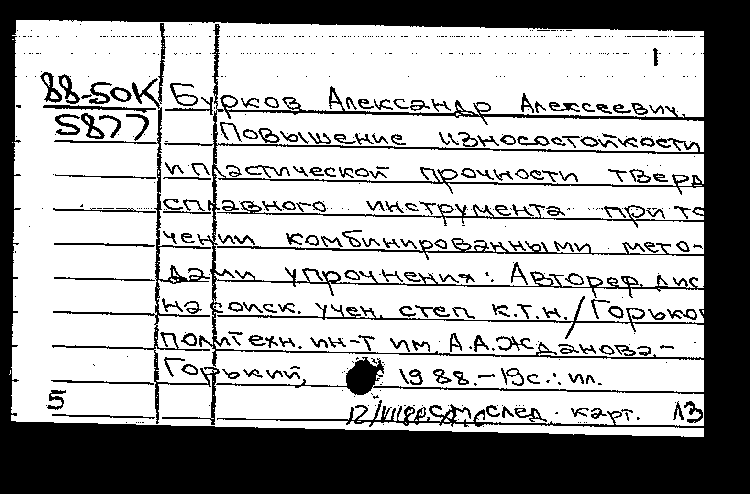 1
88-50К Бурков Александр Алексеевич.
5877 Повышение износостойкости
и пластической прочности тверд
сплавного инструмента при то
чении комбинированными мето-
дами упрочнения: Автореф. дис
на соиск. учен. степ. к.т.н./Горьков
политехн. ин-т им. А.А.Жданова.-
Горький, 1988.-19с.: ил.
5 см след. карт. 13